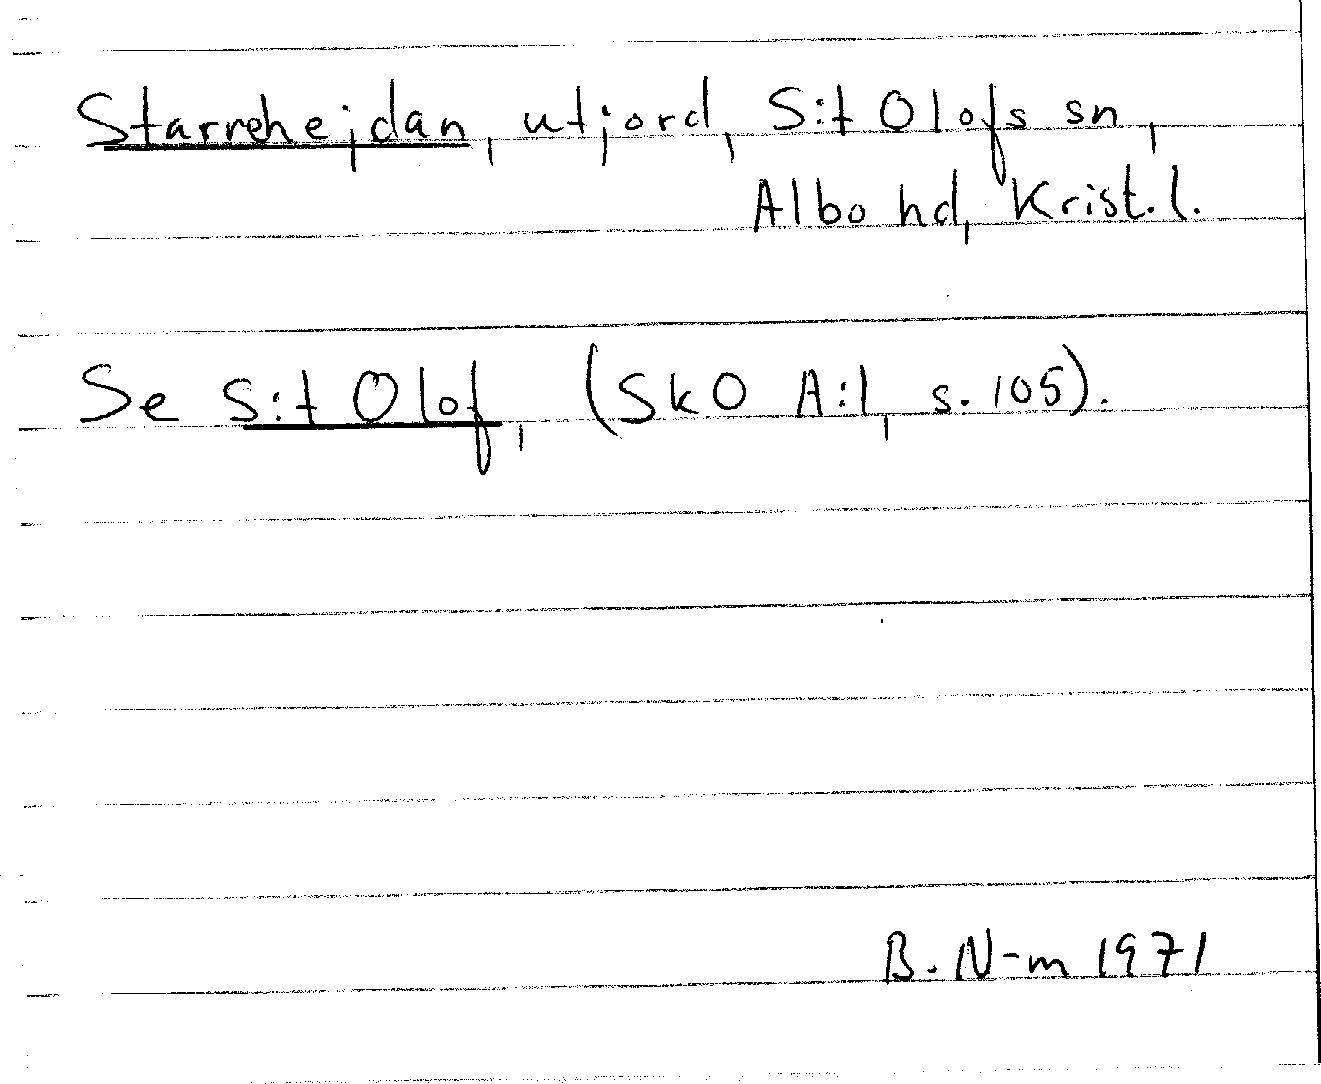 Starrehejdan, utjord, S:t Olofs sn,
Albo hd, Krist.l.
Se S:t Olof, (SkO A:1, s. 105).
B. N-m 1971